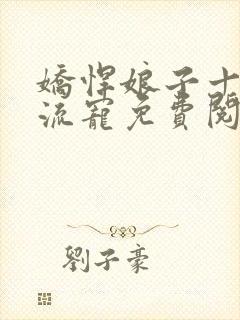 嬌悍娘子十
流寵免費閱
劉子豪